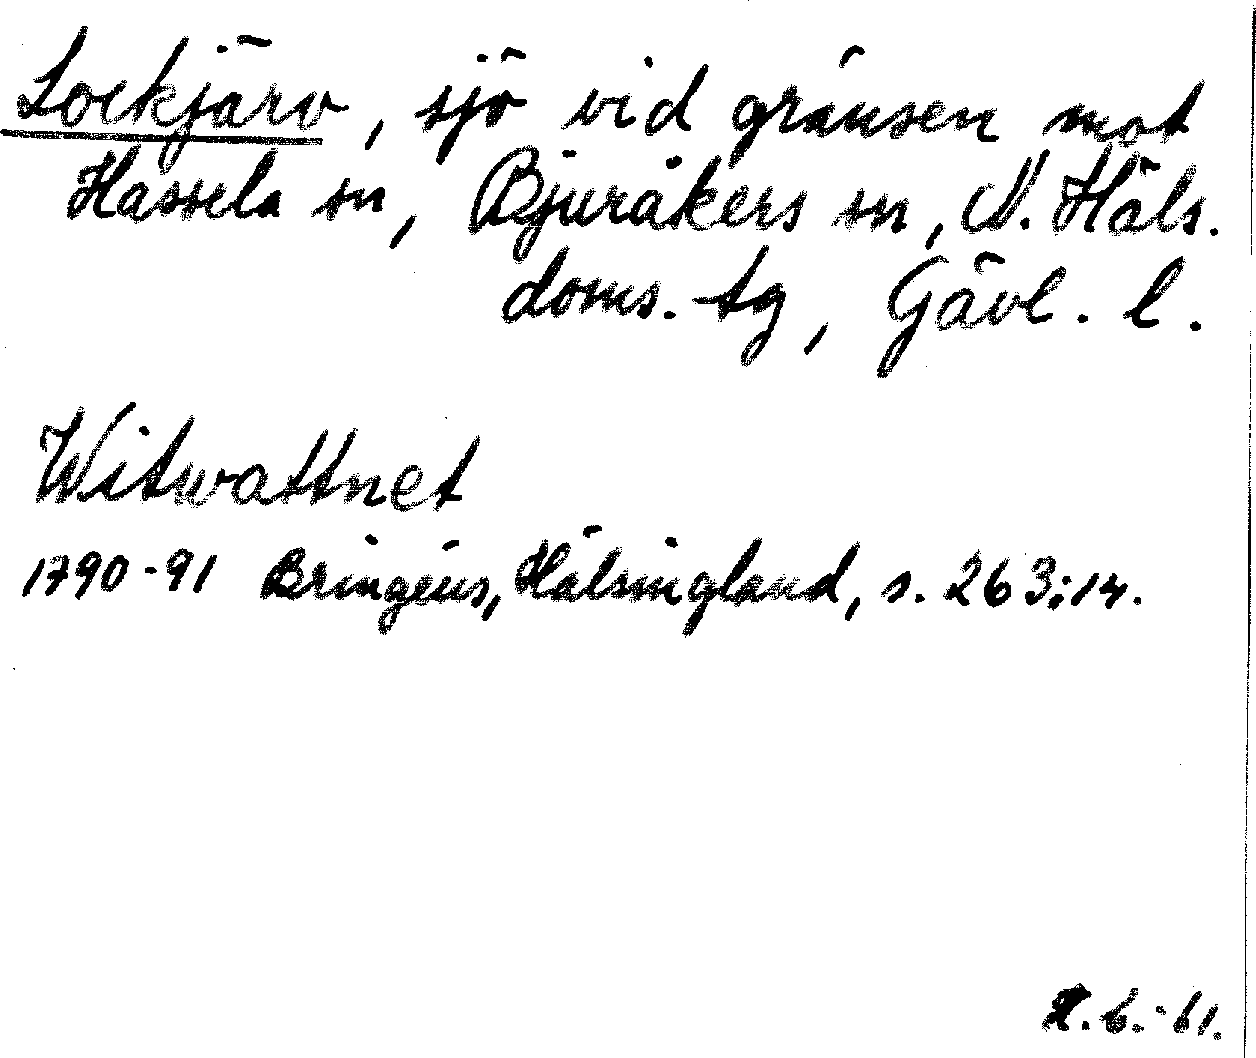 Lockjärv, sjö vid gränsen mot
Hassela sn, Bjuråkers sn, N. Häls.
doms. tg, Gävl. l.
Witwattnet
1790-91 Bringéus, Hälsingland, s. 263:14.
.6.-61.